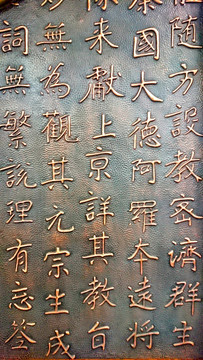 隨方設教密濟群生
秦國大德阿羅本遠將
像来獻上京詳其教旨
妙無為觀其元宗生成
詞無繁説理有忘筌